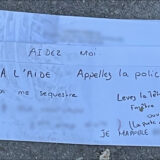 AIDEZ MOI
A L'AIDE Appellez la police
on me sequestre
Levez la Tête
fenêtre
ouv
JE M'APPELLE